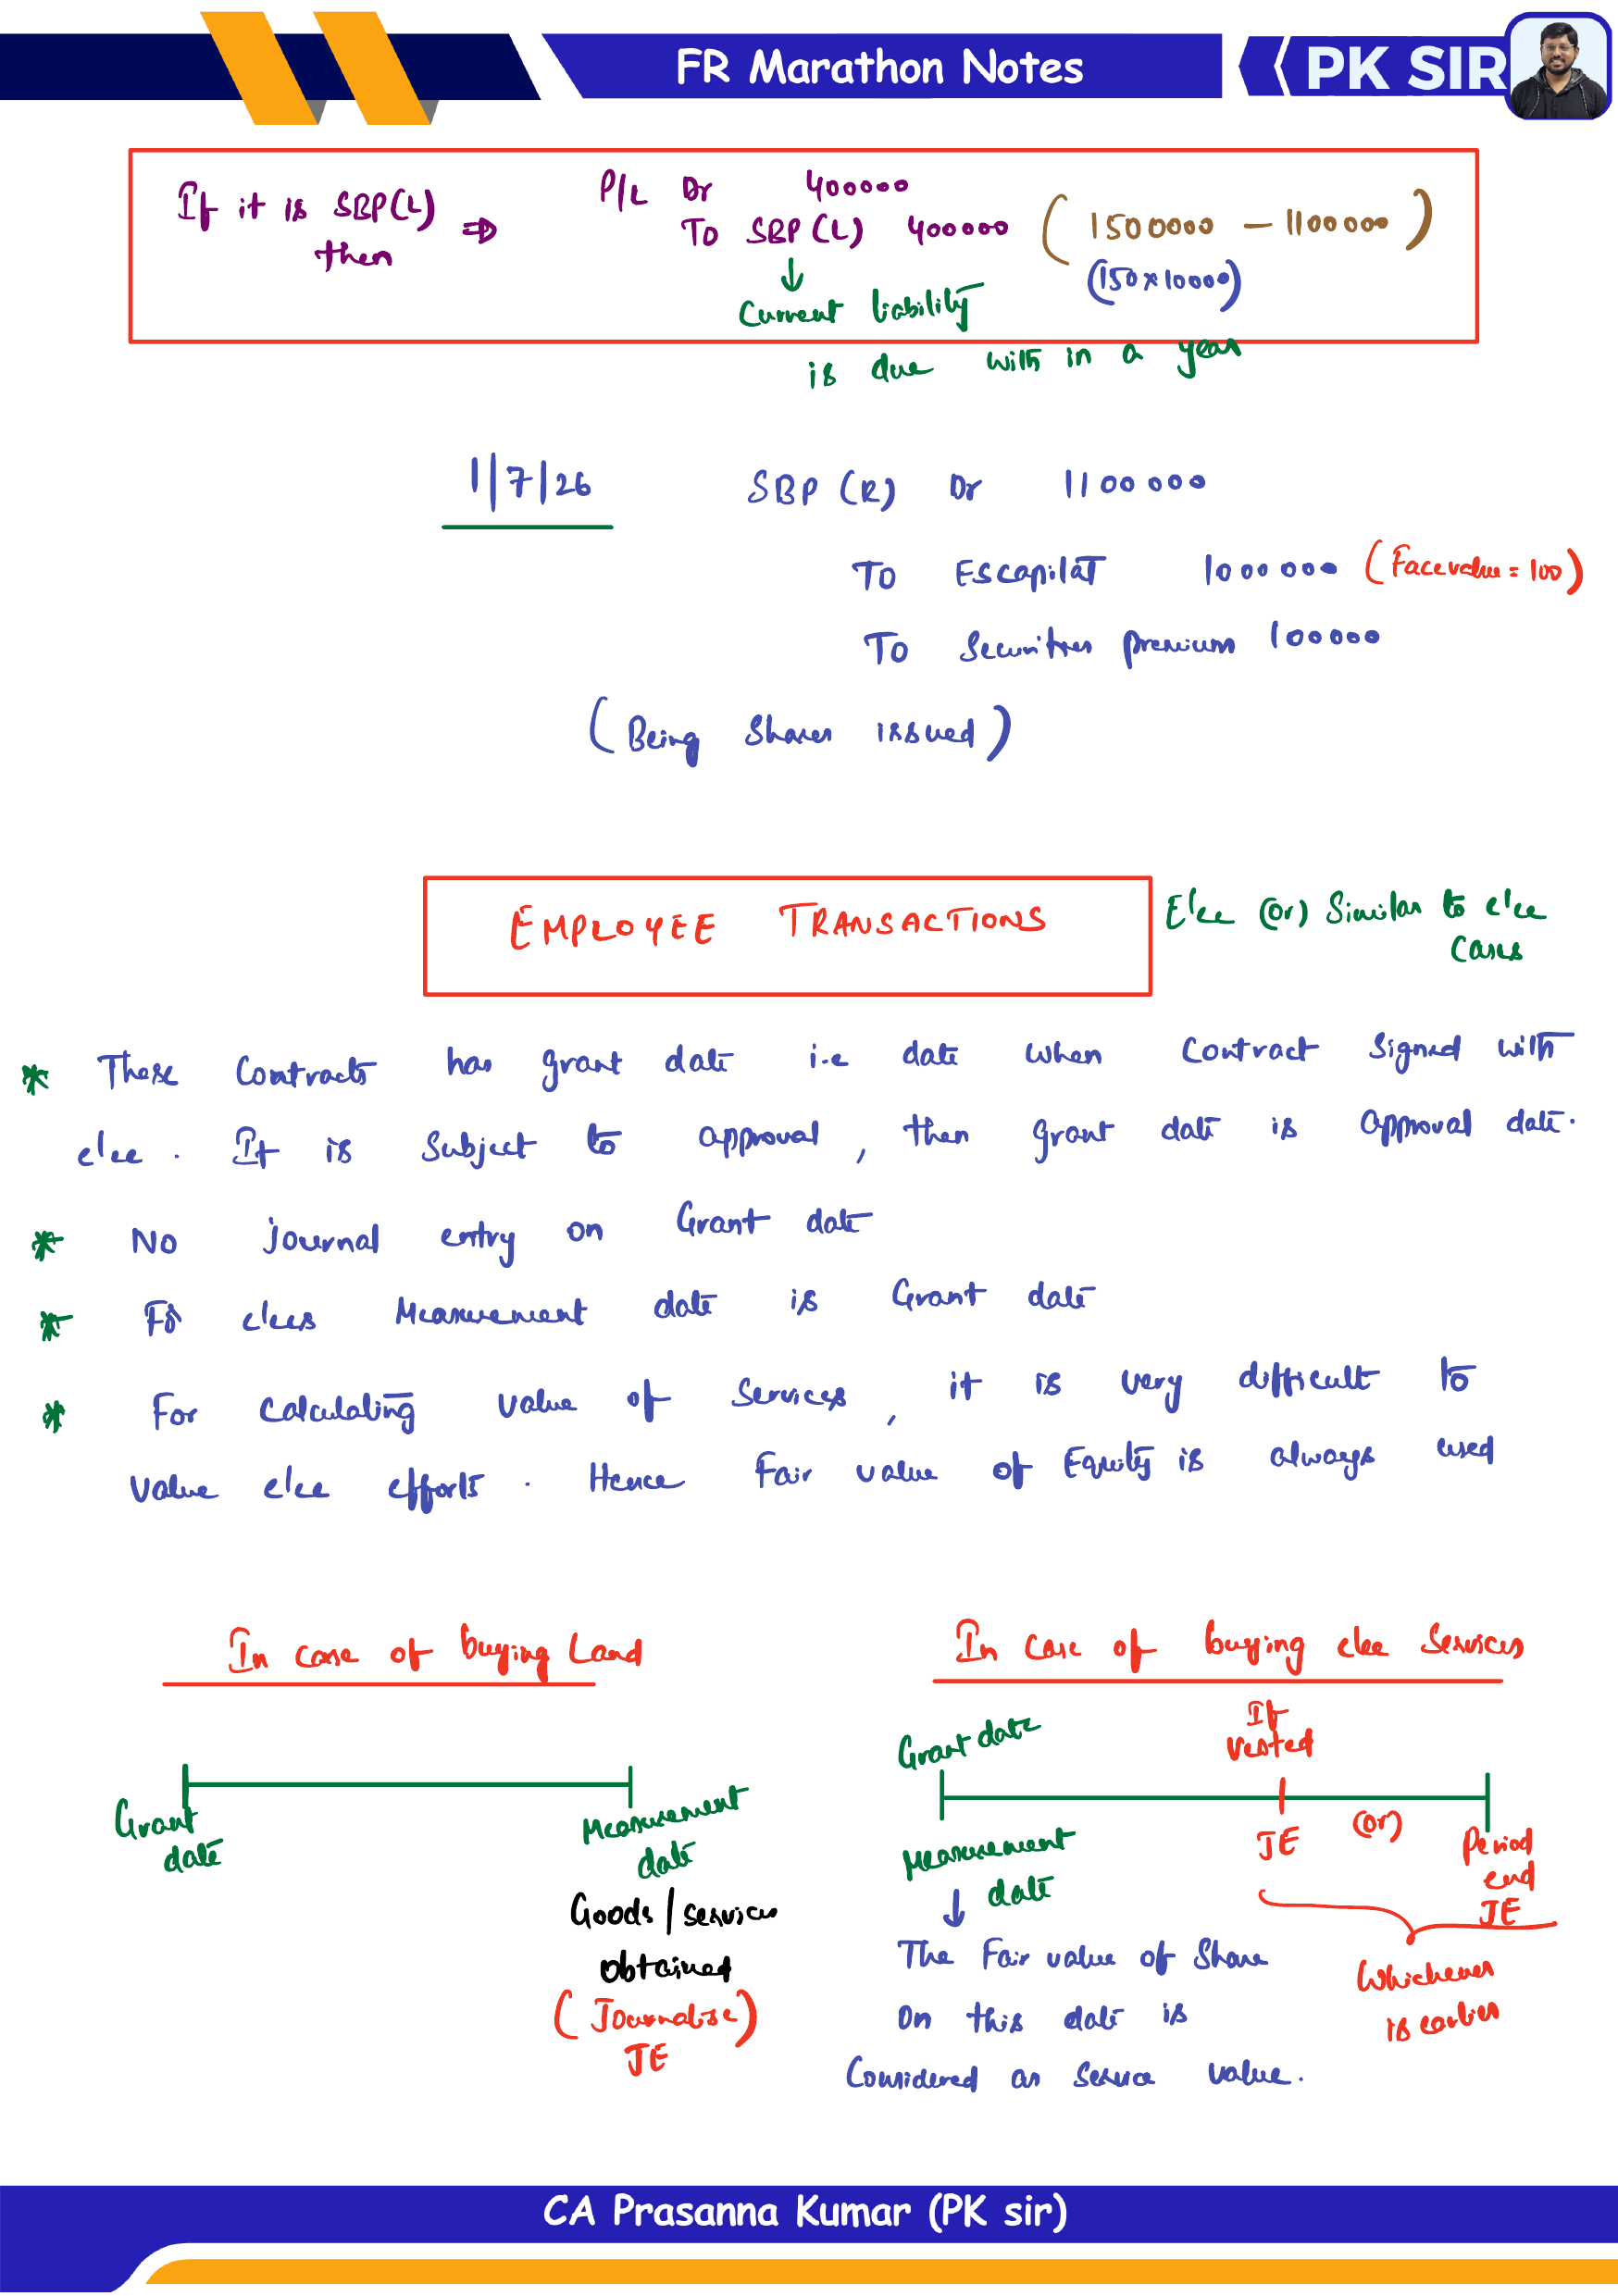 FR Marathon Notes
PK SIR
If it is SBP(L) ⇒ P/L Dr 400000
then To SBP (L) 400000 (1500000 - 1100000)
(150×10000)
↓
Current liability
is due with in a year
1/7/26 SBP (R) Dr 1100000
To Escapital 1000000 (Facevalue = 100)
To Securities premium 100000
(Being Shares issued)
EMPLOYEE TRANSACTIONS
E'ee (or) Similar to e'ee
Cases
* These Contracts has grant date i.e date when Contract Signed with
e'ee. If is Subject to approval, then grant date is approval date.
* No journal entry on Grant date
* For e'ees Measurement date is Grant date
* For calculating value of Services, it is very difficult to
value e'ee efforts. Hence Fair value of Equity is always used
In case of buying Land
Grant
date
Measurement
date
Goods/services
obtained
(Journalise)
JE
In case of buying e'ee Services
Grant date
If
vested
Measurement
date
JE
(or)
Period
end
JE
↓
The Fair value of Share
on this date is
Considered as service value.
Whichever
is earlier
CA Prasanna Kumar (PK sir)